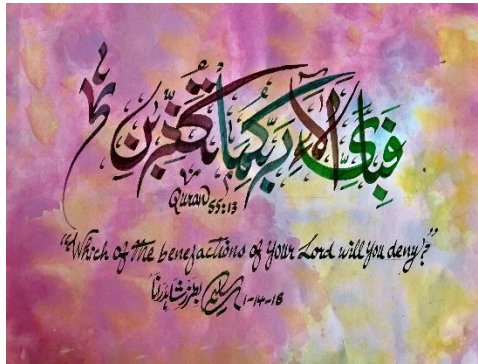 فَبِاَيِّ اٰلَآءِ رَبِّكُمَا تُكَذِّبٰنِ
Quran 55:13
"Which of the benefactions of your Lord will you deny?"
1-14-16